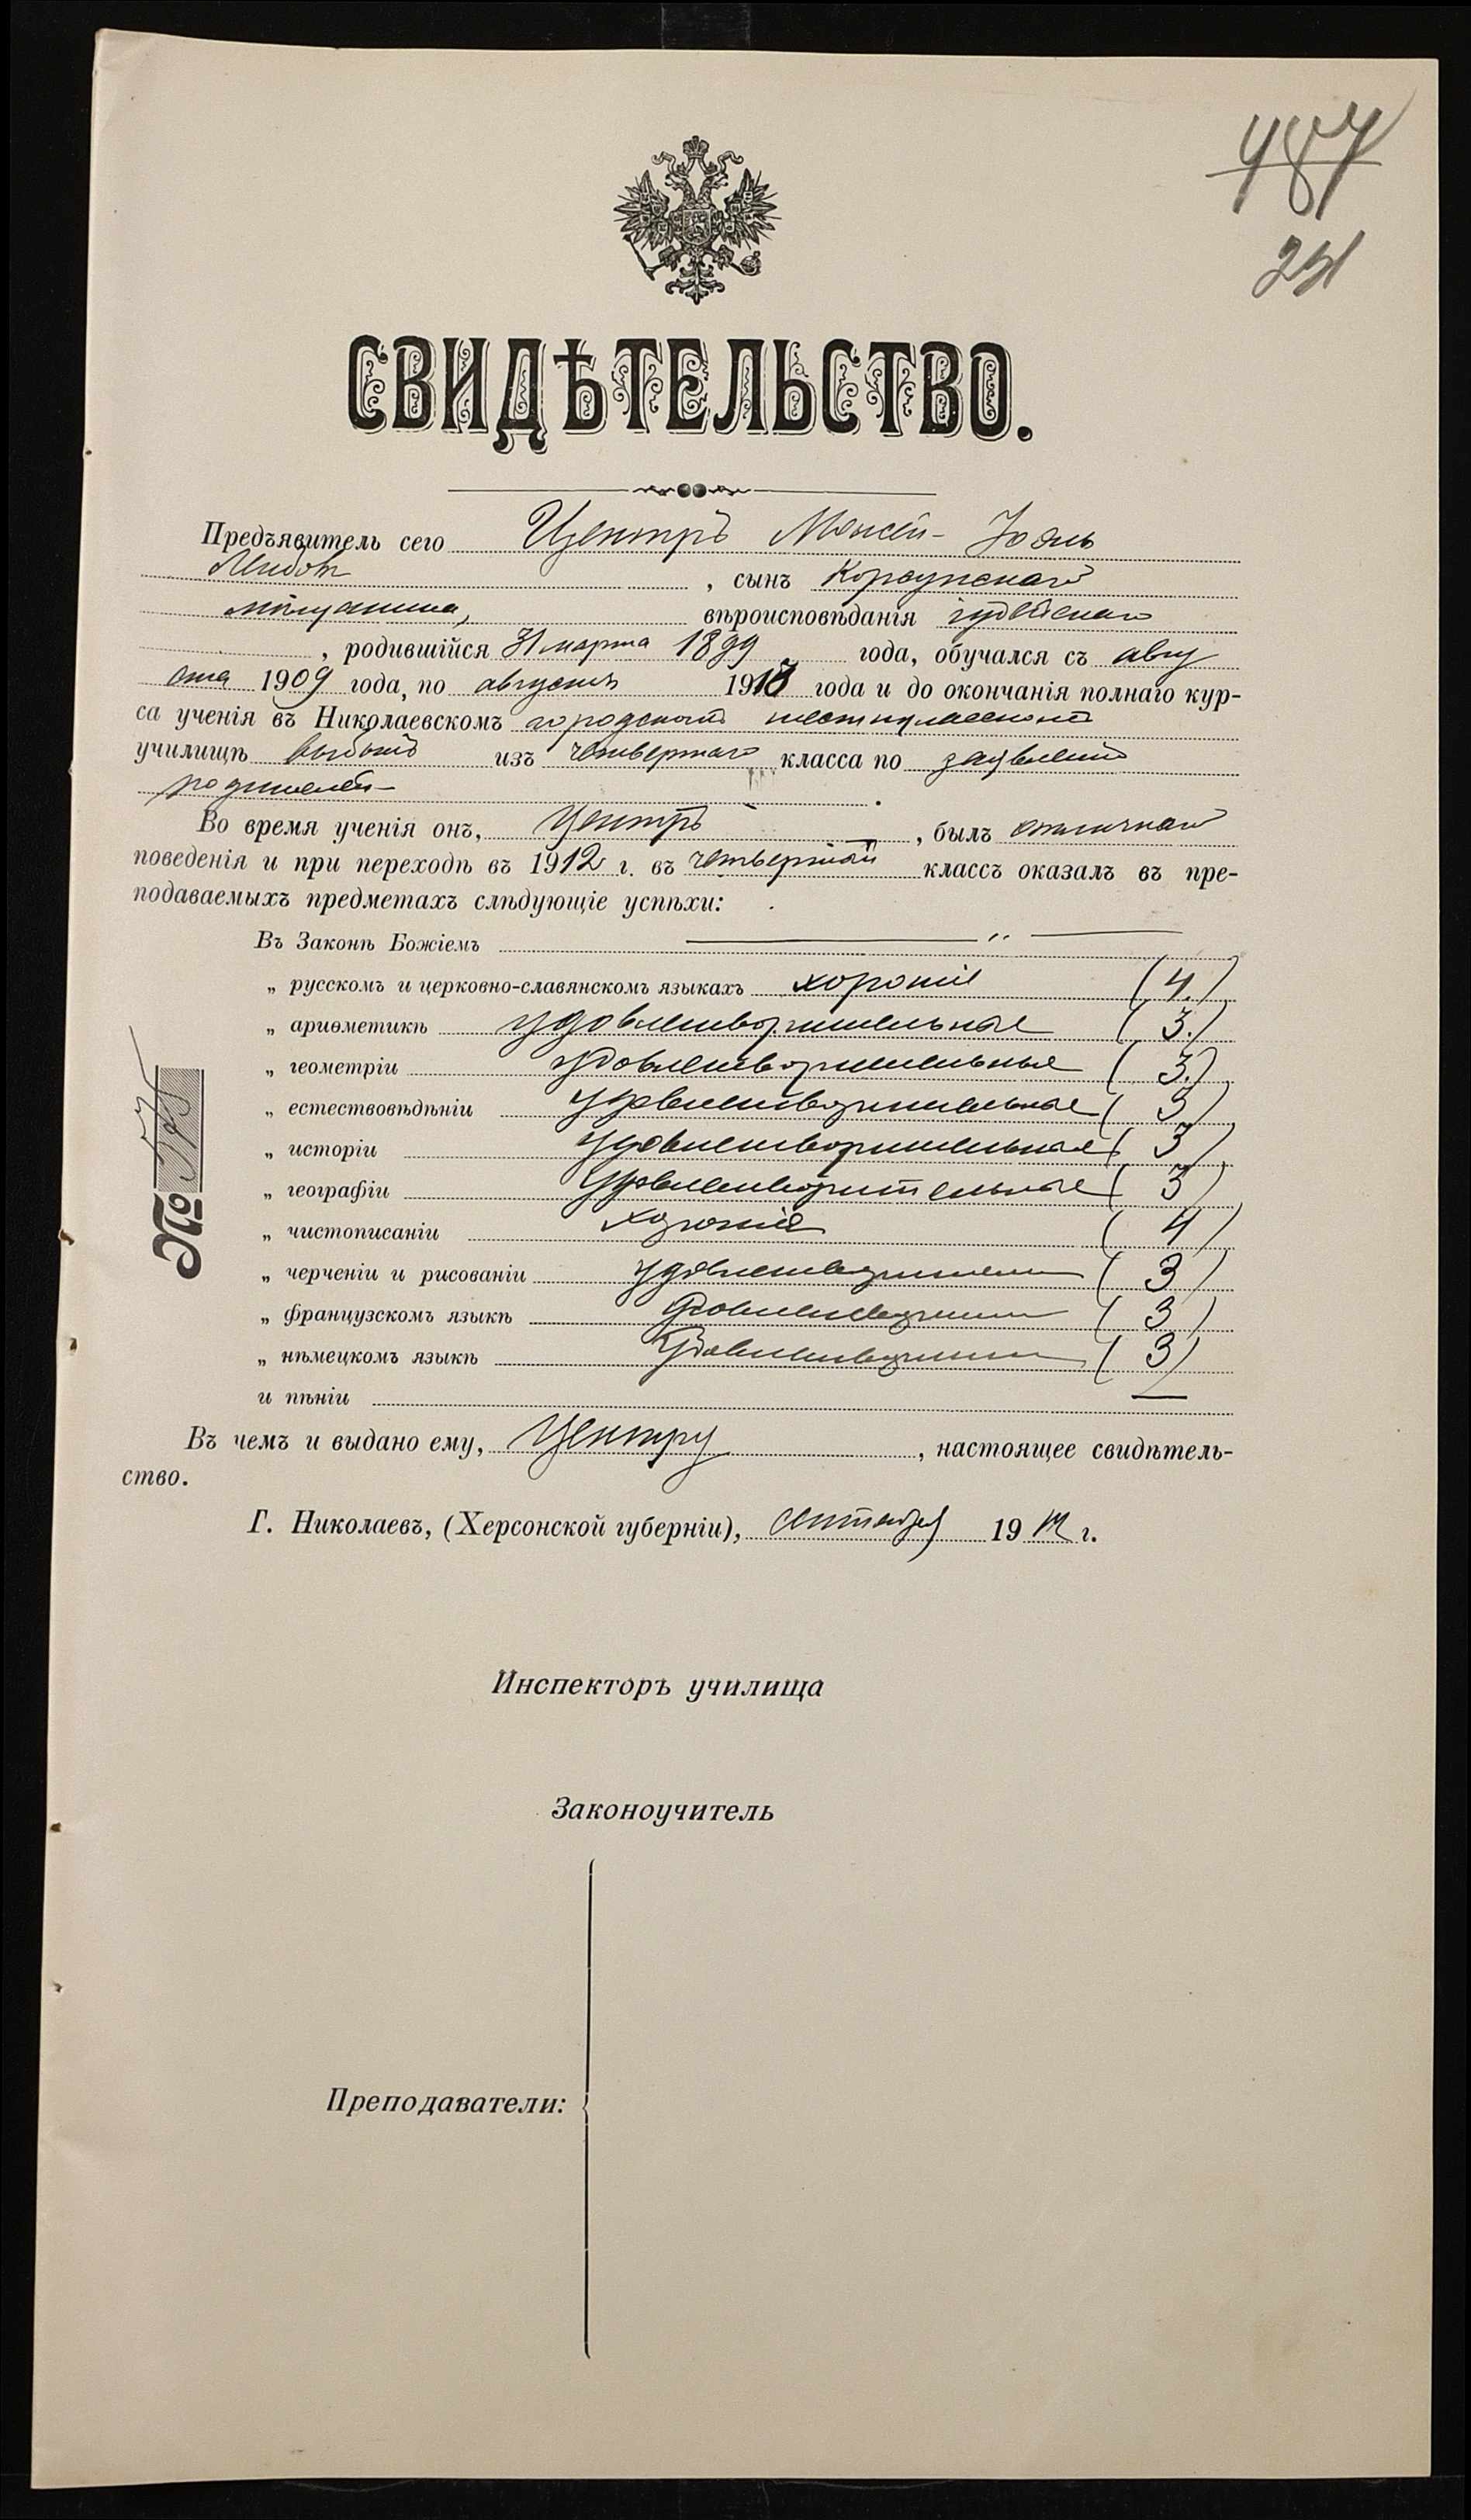 487
СВИДѢТЕЛЬСТВО.
Предъявитель сего Центръ Мовсей-Іоэль
Лейбовъ, сынъ Корсунскаго
мѣщанина, вѣроисповѣданія іудейскаго
, родившійся 31 марта 1899 года, обучался съ авгу
ста 1909 года, по августъ 1913 года и до окончанія полнаго кур-
са ученія въ Николаевскомъ городскомъ шестиклассномъ
училищѣ выбылъ изъ четвертаго класса по заявленію
родителей.
Во время ученія онъ, Центръ, былъ отличнаго
поведенія и при переходѣ въ 1912 г. въ четвертый классъ оказалъ въ пре-
подаваемыхъ предметахъ слѣдующіе успѣхи:
Въ Законѣ Божіемъ — „ —
„ русскомъ и церковно-славянскомъ языкахъ хорошіе (4.)
„ ариѳметикѣ удовлетворительные (3.)
„ геометріи удовлетворительные (3.)
„ естествовѣдѣніи удовлетворительные (3)
„ исторіи удовлетворительные (3)
„ географіи удовлетворительные (3)
„ чистописаніи хорошіе (4)
„ черченіи и рисованіи удовлетворительн (3)
„ французскомъ языкѣ удовлетворит (3)
„ нѣмецкомъ языкѣ удовлетворит (3)
и пѣніи —
№
Въ чемъ и выдано ему, Центру, настоящее свидѣтель-
ство.
Г. Николаевъ, (Херсонской губерніи), сентября 19 г.
Инспекторъ училища
Законоучитель
Преподаватели: